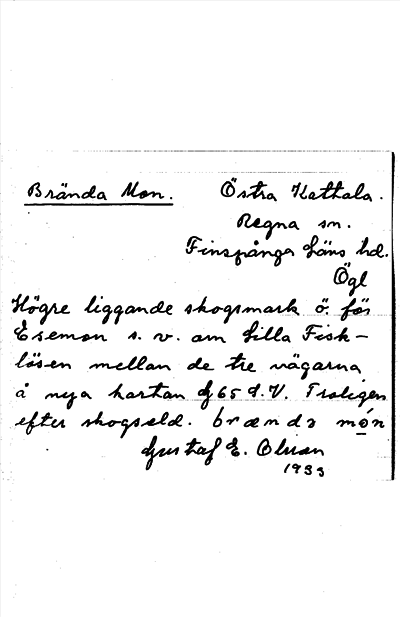 Brända Mon. Östra Kattala.
Regna sn.
Finspånga Läns hd.
Ögl
Högre liggande skogsmark ö. för
Esemon s. v. om Lilla Fisk-
lösen mellan de tre vägarna
å nya kartan 65 d.V. Troligen
efter skogseld. brænda món
Gustaf E. Olsson
1933